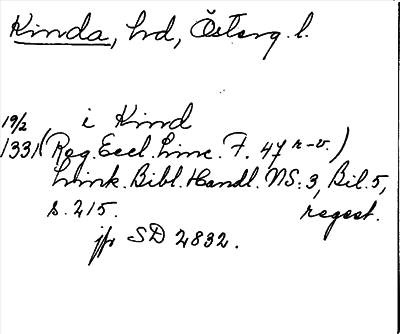 Kinda, hd, Österg. l.
i Kind
19/2
1331 (Reg. Eccl. Linc. F. 47 r-v.)
Link. Bibl. Handl. NS: 3, Bil. 5,
s. 215. regest.
jfr SD 2832.